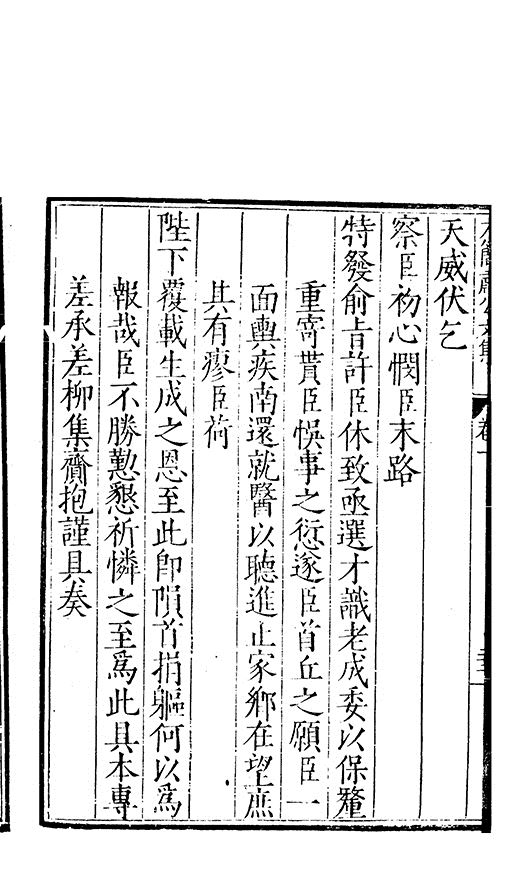 天威伏乞
察臣初心憫臣末路
特發俞旨許臣休致亟選才識老成委以保釐
重寄貰臣悞事之愆遂臣首丘之願臣一
面輿疾南還就醫以聽進止家鄉在望庶
其有瘳臣荷
陛下覆載生成之恩至此卽隕首捐軀何以爲
報哉臣不勝懃懇祈憐之至爲此具本專
差承差柳集齎抱謹具奏